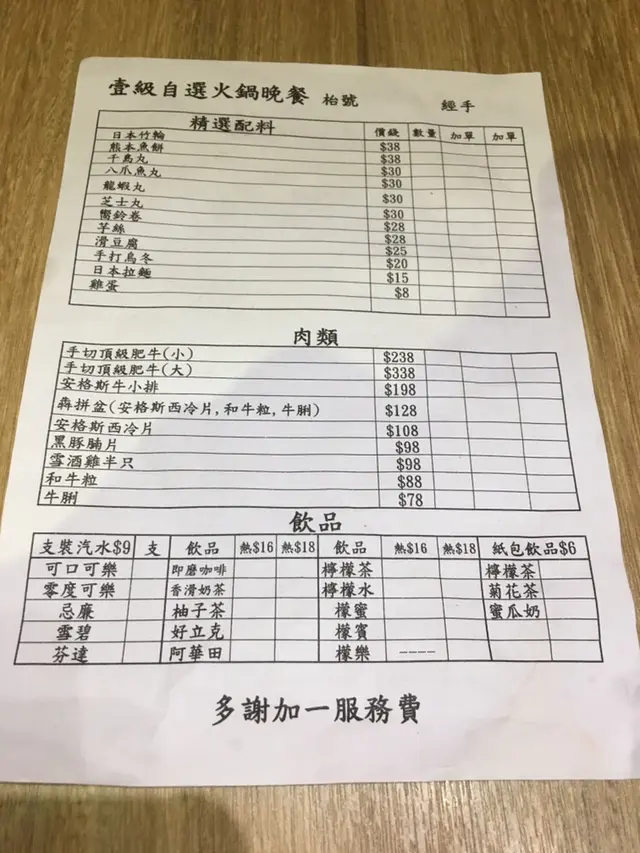 壹級自選火鍋晚餐 枱號 經手
精選配料 價錢 數量 加單 加單
日本竹輪 $38
熊本魚餅 $38
千島丸 $30
八爪魚丸 $30
龍蝦丸 $30
芝士丸 $30
響鈴卷 $28
芋絲 $28
滑豆腐 $25
手打烏冬 $20
日本拉麵 $15
雞蛋 $8
肉類
手切頂級肥牛(小) $238
手切頂級肥牛(大) $338
安格斯牛小排 $198
犇拼盆(安格斯西冷片,和牛粒,牛脷) $128
安格斯西冷片 $108
黑豚腩片 $98
雪酒雞半只 $98
和牛粒 $88
牛脷 $78
飲品
支裝汽水$9 支 飲品 熱$16 熱$18 飲品 熱$16 熱$18 紙包飲品$6
可口可樂 即磨咖啡 檸檬茶 檸檬茶
零度可樂 香滑奶茶 檸檬水 菊花茶
忌廉 柚子茶 檬蜜 蜜瓜奶
雪碧 好立克 檬賓
芬達 阿華田 檬樂 ----
多謝加一服務費